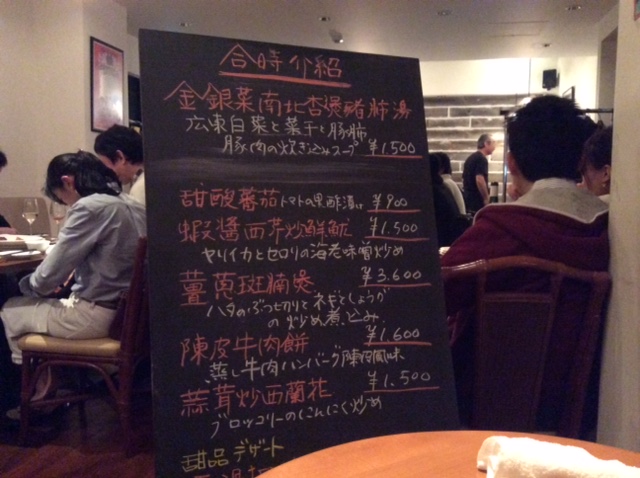 合時介紹
金銀菜南北杏煲豬肺湯
広東白菜と菜干と豚肺
豚肉の炊き込みスープ ¥1,500
甜酸蕃茄 トマトの黒酢漬け ¥900
蝦醬西芹炒鮮魷 ¥1,500
ヤリイカとセロリの海老味噌炒め
薑蔥斑腩煲 ¥3,600
ハタのぶつ切りとネギとしょうが
の炒め煮込み
陳皮牛肉餅 ¥1,600
蒸し牛肉ハンバーグ陳皮風味
蒜茸炒西蘭花 ¥1,500
ブロッコリーのにんにく炒め
甜品 デザート